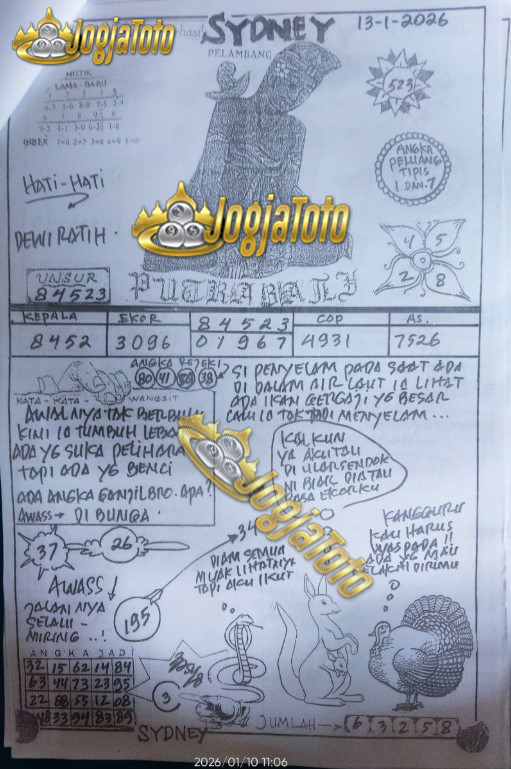 JogjaToto
SYDNEY
13-1-2026
PELAMBANG
MISTIK
LAMA - BARU
523
ANGKA
PELUANG
TIPIS
1 DAN.7
HATI-HATI
DEWI RATIH.
JogjaToto
4 5
2 8
UNSUR
84523
PUTRA BALI
KEPALA
EKOR
84523
COP
AS.
8452
3096
01967
4931
7526
ANGKA REJEKI
80 41 38
KATA - KATA
WANGSIT
AWALNYA TAK BERBULU
KINI IO TUMBUH
ADA YG SUKA PELIHARA
TAPI ADA YG BENCI
ADA ANGKA GANJIL BRO. APA?
AWASS → DI BUNGA.
SI PENYELAM PADA SAAT ADA
DI DALAM AIR LAUT IO LIHAT
ADA IKAN GERGAJI YG BESAR
MENYELAM...
KALKUN
YA AKU TAU
DI ULAR SENDOK
EKORKU
JogjaToto
KANGGURU
KAU HARUS
WASPADA !!
ADA YG MAU
37
26
34
DIAM SEMUA
MUAK LIHATNYA
TAPI AKU IKUT
AWASS!
JALANNYA
SELALU -
MIRING ..!
195
ANGKA JADI
32 15 62 14 84
63 44 73 23 95
22 88 55 12 08
48 33 94 83 89
3
SYDNEY
JUMLAH → 6 3 2 5 8
2026/01/10 11:06